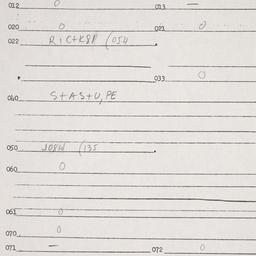 012 0 013 —
020 0 021 0
022 R I C + K S P (054
033 0
040 S + A S + U, P E
050 JOBW (135
060 0
061 0
070 0
071 — 072 0